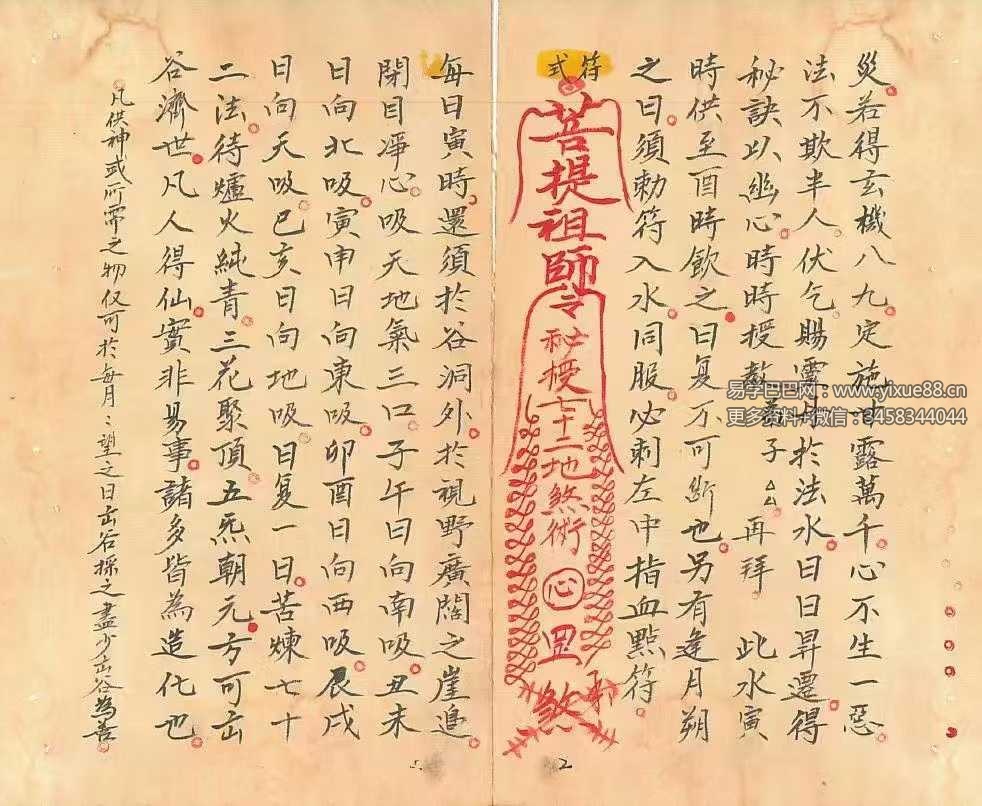 災若得玄機八九定施甘露萬千心不生一惡
法不欺半人伏乞賜靈丹於法水日日昇遷得
秘訣以繼心時時授教善子△△再拜 此水寅
時供至酉時飲之日复不可斷也另有逢月朔
之日須勅符入水同服必刺左中指血點符
符式
菩提祖師令秘授七十二地煞術心罡煞
每日寅時還須於谷洞外於視野廣闊之崖邊
閉目淨心吸天地氣三口子午日向南吸丑未
日向北吸寅申日向東吸卯酉日向西吸辰戌
日向天吸巳亥日向地吸日复一日苦煉七十
二法待爐火純青三花聚頂五炁朝元方可出
谷濟世凡人得仙實非易事諸多皆為造化也
凡供神或所需之物仅可於每月二望之日出谷採之盡少出谷為善
易学巴巴网：www.yixue88.cn
更多资料+微信：3458344044
2